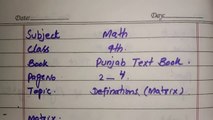 Date: Day:
Subject Math
Class 9th
Book Punjab Text Book.
Page No 2 — 4
Topic Definations (Matrix)
Matrix: